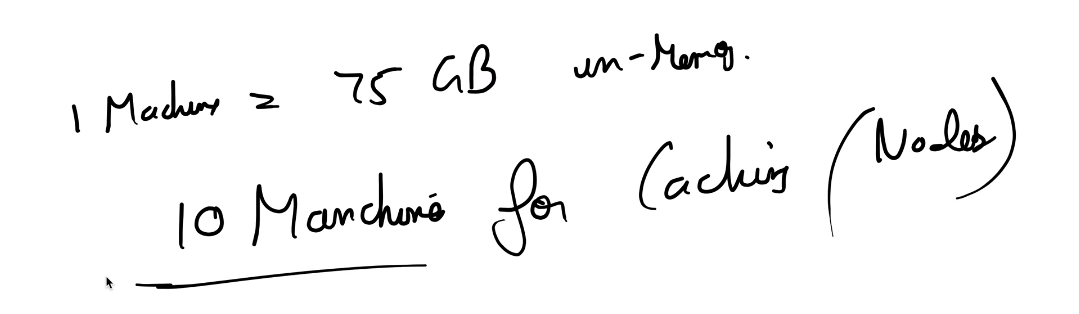 1 Machine = 75 GB in-Memory.
10 Manchine for Caching (Nodes)